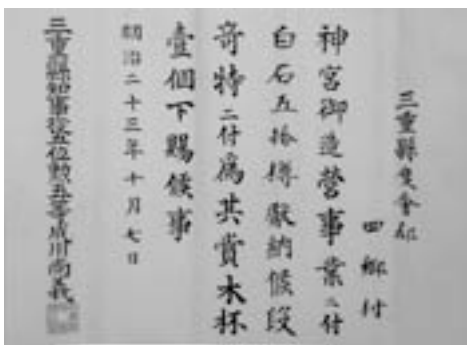 三重縣度會郡
四郷村
神宮御造營事業ニ付
白石五拾樽獻納候段
奇特ニ付為其賞木杯
壹個下賜候事
明治二十三年十月七日
三重縣知事從五位勲五等成川尚義